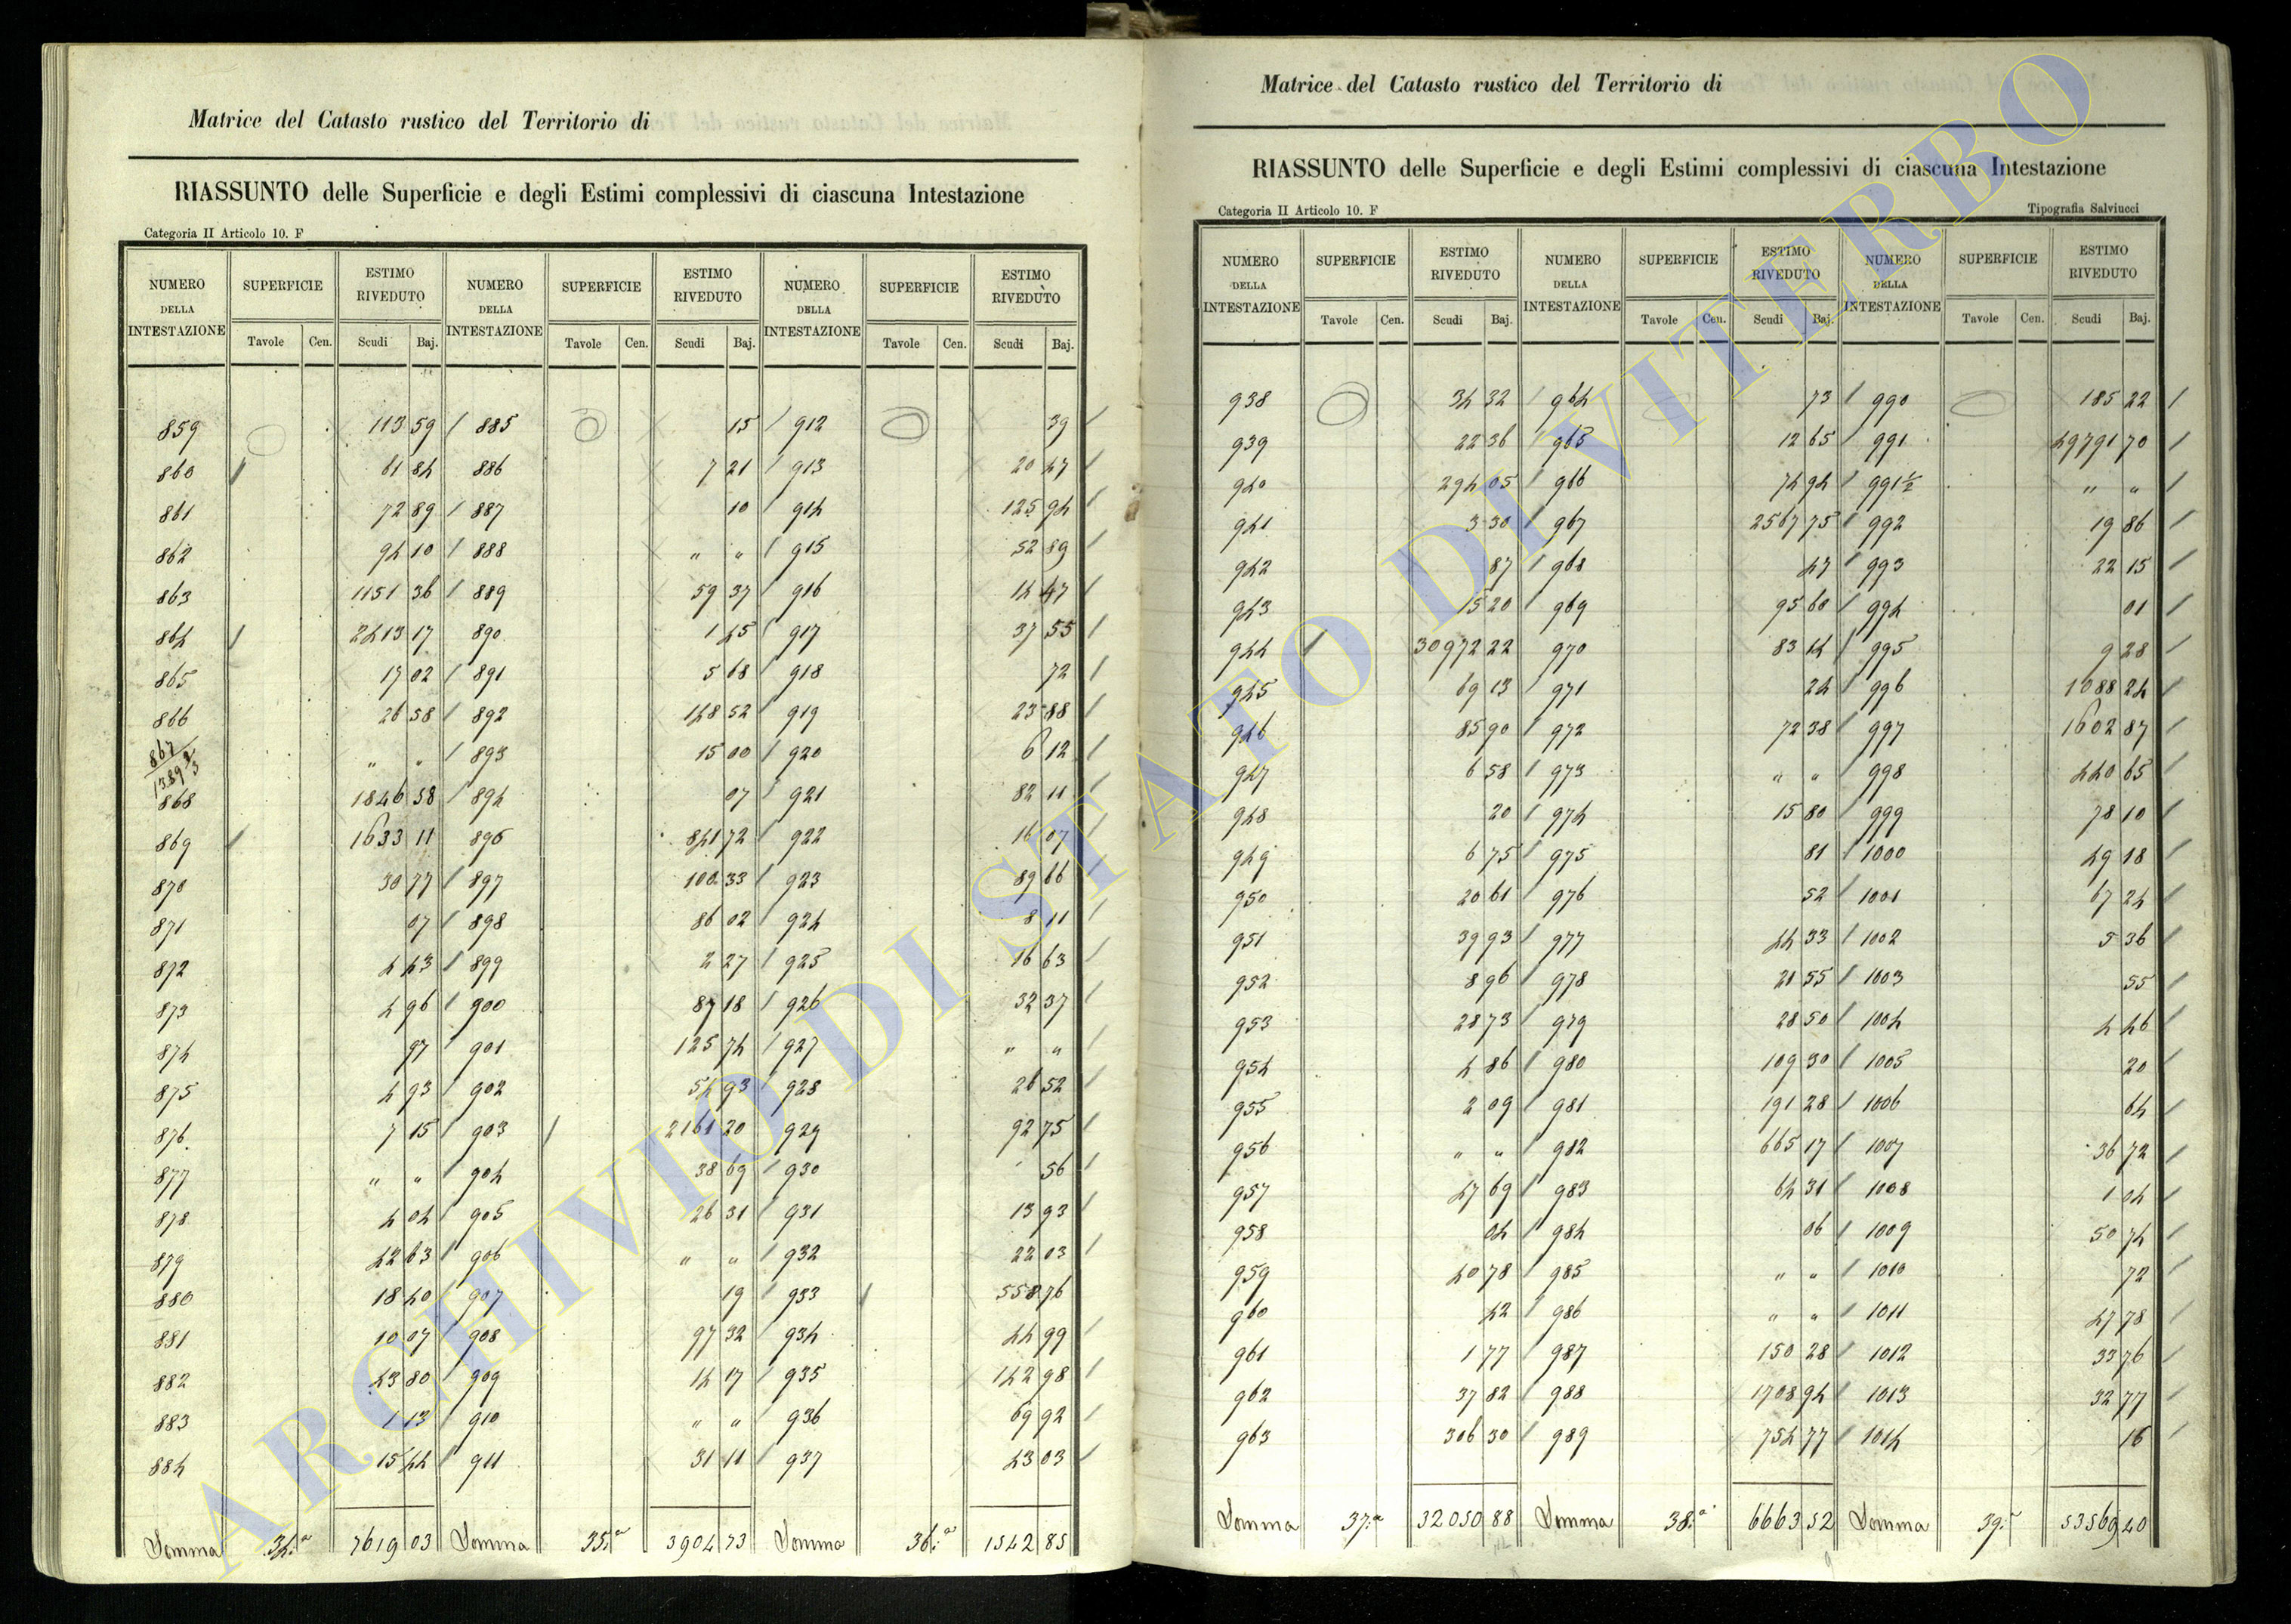 Matrice del Catasto rustico del Territorio di
RIASSUNTO delle Superficie e degli Estimi complessivi di ciascuna Intestazione
Categoria II Articolo 10. F
NUMERO DELLA INTESTAZIONE SUPERFICIE ESTIMO RIVEDUTO NUMERO DELLA INTESTAZIONE SUPERFICIE ESTIMO RIVEDUTO NUMERO DELLA INTESTAZIONE SUPERFICIE ESTIMO RIVEDUTO
Tavole Cen. Scudi Baj. Tavole Cen. Scudi Baj. Tavole Cen. Scudi Baj.
859 113 59 885 15 912 39
860 61 84 886 7 21 913 20 47
861 72 89 887 10 914 125 94
862 94 10 888 " " 915 52 89
863 1151 36 889 59 37 916 14 47
864 2413 17 890 1 45 917 37 55
865 17 02 891 5 68 918 72
866 26 58 892 148 52 919 23 88
867 " " 893 15 00 920 6 12
868 1846 58 894 07 921 82 11
869 1633 11 896 841 72 922 16 07
870 30 77 897 100 33 923 89 66
871 07 898 86 02 924 8 11
872 4 43 899 2 27 925 16 63
873 4 96 900 87 18 926 32 37
874 97 901 125 74 927 " "
875 4 93 902 54 93 928 26 52
876 7 15 903 2161 20 929 92 75
877 " " 904 38 69 930 56
878 4 04 905 26 31 931 13 93
879 42 63 906 " " 932 22 03
880 18 40 907 19 933 558 76
881 10 07 908 97 32 934 44 99
882 43 80 909 14 17 935 142 98
883 1 13 910 " " 936 69 92
884 15 44 911 31 11 937 43 03
Somma 34.a 7619 03 Somma 35.a 3904 73 Somma 36.a 1542 85
Matrice del Catasto rustico del Territorio di
RIASSUNTO delle Superficie e degli Estimi complessivi di ciascuna Intestazione
Categoria II Articolo 10. F Tipografia Salviucci
NUMERO DELLA INTESTAZIONE SUPERFICIE ESTIMO RIVEDUTO NUMERO DELLA INTESTAZIONE SUPERFICIE ESTIMO RIVEDUTO NUMERO DELLA INTESTAZIONE SUPERFICIE ESTIMO RIVEDUTO
Tavole Cen. Scudi Baj. Tavole Cen. Scudi Baj. Tavole Cen. Scudi Baj.
938 34 32 964 73 990 185 22
939 22 36 965 12 65 991 49791 70
940 294 05 966 74 94 991½ " "
941 3 30 967 2567 75 992 19 86
942 87 968 47 993 22 15
943 15 20 969 95 60 994 01
944 30972 22 970 83 14 995 9 28
945 69 13 971 24 996 1088 24
946 85 90 972 72 38 997 1602 87
947 6 58 973 " " 998 440 65
948 20 974 15 80 999 78 10
949 6 75 975 81 1000 49 18
950 20 61 976 52 1001 67 24
951 39 93 977 44 33 1002 5 36
952 8 96 978 21 55 1003 55
953 28 73 979 28 50 1004 4 46
954 4 86 980 109 30 1005 20
955 2 09 981 191 28 1006 64
956 " " 982 665 17 1007 36 72
957 47 69 983 64 31 1008 1 04
958 04 984 06 1009 50 74
959 40 78 985 " " 1010 72
960 42 986 " " 1011 47 78
961 1 77 987 150 28 1012 33 76
962 37 82 988 1708 94 1013 32 77
963 306 30 989 754 77 1014 16
Somma 37.a 32050 88 Somma 38.a 6663 52 Somma 39.a 53569 40
ARCHIVIO DI STATO DI VITERBO